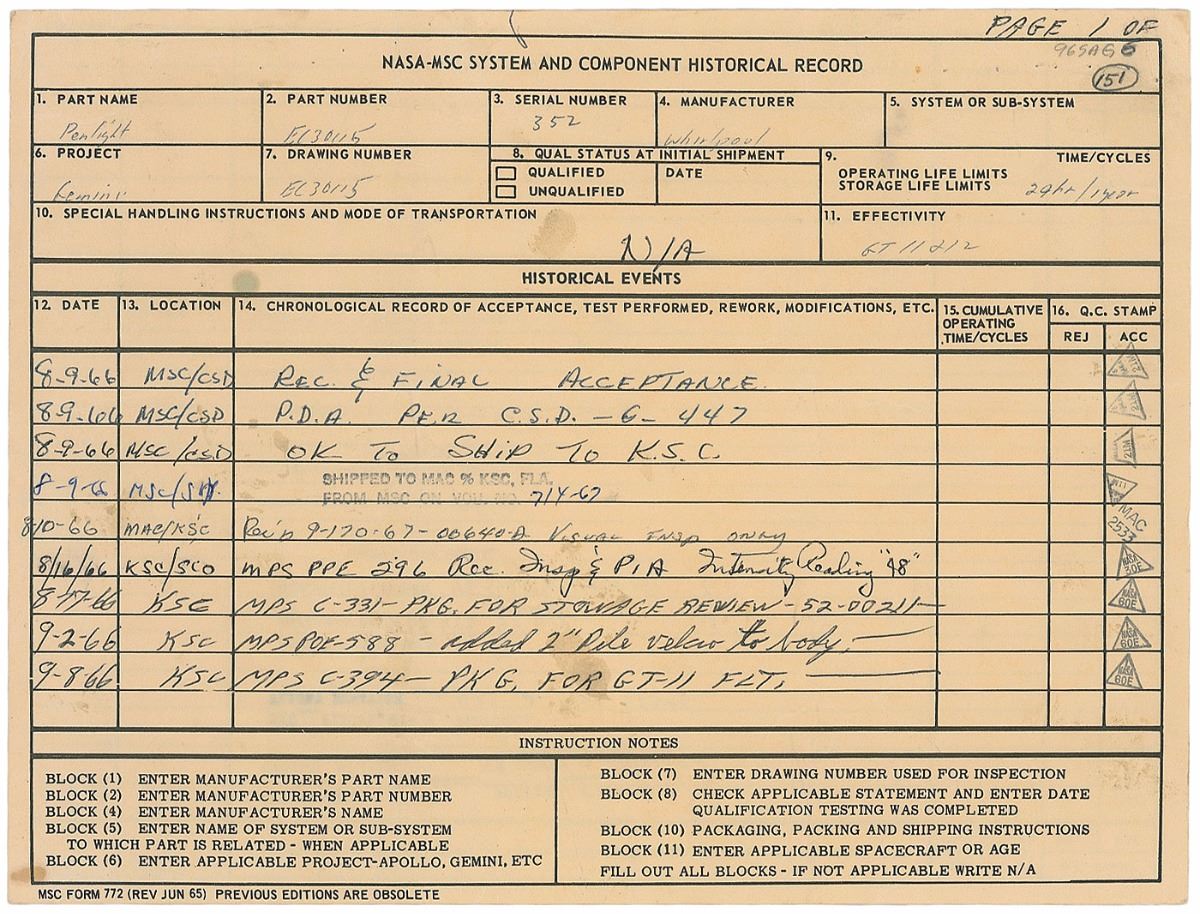 PAGE 1 OF
965AG5
151
NASA-MSC SYSTEM AND COMPONENT HISTORICAL RECORD
1. PART NAME
Penlight
2. PART NUMBER
EC30115
3. SERIAL NUMBER
352
4. MANUFACTURER
Whirlpool
5. SYSTEM OR SUB-SYSTEM
6. PROJECT
Gemini
7. DRAWING NUMBER
EC30115
8. QUAL STATUS AT INITIAL SHIPMENT
QUALIFIED
UNQUALIFIED
DATE
9. TIME/CYCLES
OPERATING LIFE LIMITS
STORAGE LIFE LIMITS
/1year
10. SPECIAL HANDLING INSTRUCTIONS AND MODE OF TRANSPORTATION
N/A
11. EFFECTIVITY
GT 11 & 12
HISTORICAL EVENTS
12. DATE 13. LOCATION 14. CHRONOLOGICAL RECORD OF ACCEPTANCE, TEST PERFORMED, REWORK, MODIFICATIONS, ETC. 15. CUMULATIVE OPERATING TIME/CYCLES 16. Q.C. STAMP
REJ ACC
8-9-66 MSC/CSD REC. & FINAL ACCEPTANCE.
8-9-66 MSC/CSD P.D.A. PER C.S.D. -G- 447
8-9-66 MSC/CSD OK TO SHIP TO K.S.C. 21M
8-9-66 SHIPPED TO MAC % KSC, FLA.
FROM MSC ON VOU. NO. 714-67
8/10-66 MAC/KSC Rec'd 9-170-67-00640-A VISUAL INSP ONLY MAC 2533
8/16/66 KSC/SCO MPS PPE 296 Rec. Insp & PIA Intensity Reading "48" NASA 30E
8-17-66 KSC MPS C-331-PKG. FOR STOWAGE REVIEW-52-00211- NASA 60E
9-2-66 KSC MPS POE-588 - added 2" Pile velcro to body. NASA 60E
9-8-66 KSC MPS C-394- PKG. FOR GT-11 FLT. NASA 60E
INSTRUCTION NOTES
BLOCK (1) ENTER MANUFACTURER'S PART NAME
BLOCK (2) ENTER MANUFACTURER'S PART NUMBER
BLOCK (4) ENTER MANUFACTURER'S NAME
BLOCK (5) ENTER NAME OF SYSTEM OR SUB-SYSTEM
TO WHICH PART IS RELATED - WHEN APPLICABLE
BLOCK (6) ENTER APPLICABLE PROJECT-APOLLO, GEMINI, ETC
BLOCK (7) ENTER DRAWING NUMBER USED FOR INSPECTION
BLOCK (8) CHECK APPLICABLE STATEMENT AND ENTER DATE
QUALIFICATION TESTING WAS COMPLETED
BLOCK (10) PACKAGING, PACKING AND SHIPPING INSTRUCTIONS
BLOCK (11) ENTER APPLICABLE SPACECRAFT OR AGE
FILL OUT ALL BLOCKS - IF NOT APPLICABLE WRITE N/A
MSC FORM 772 (REV JUN 65) PREVIOUS EDITIONS ARE OBSOLETE